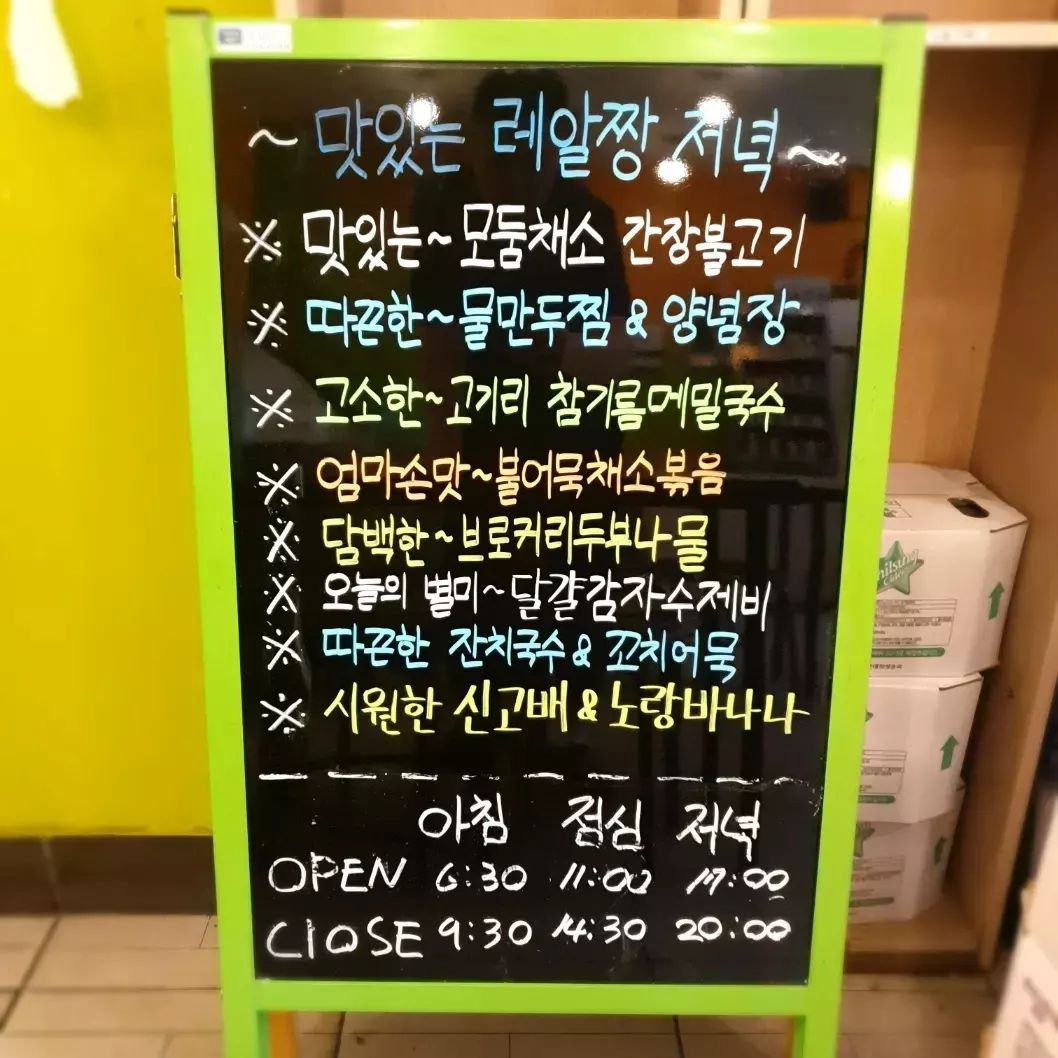 ~ 맛있는 레알짱 저녁 ~
※ 맛있는~모둠채소 간장불고기
※ 따끈한~물만두찜 & 양념장
※ 고소한~고기리 참기름메밀국수
※ 엄마손맛~불어묵채소볶음
※ 담백한~브로커리두부나물
※ 오늘의 별미~달걀감자수제비
※ 따끈한 잔치국수 & 꼬치어묵
※ 시원한 신고배 & 노랑바나나
아침 점심 저녁
OPEN 6:30 11:00 17:00
ClOSE 9:30 14:30 20:00
Chilsung
Cider